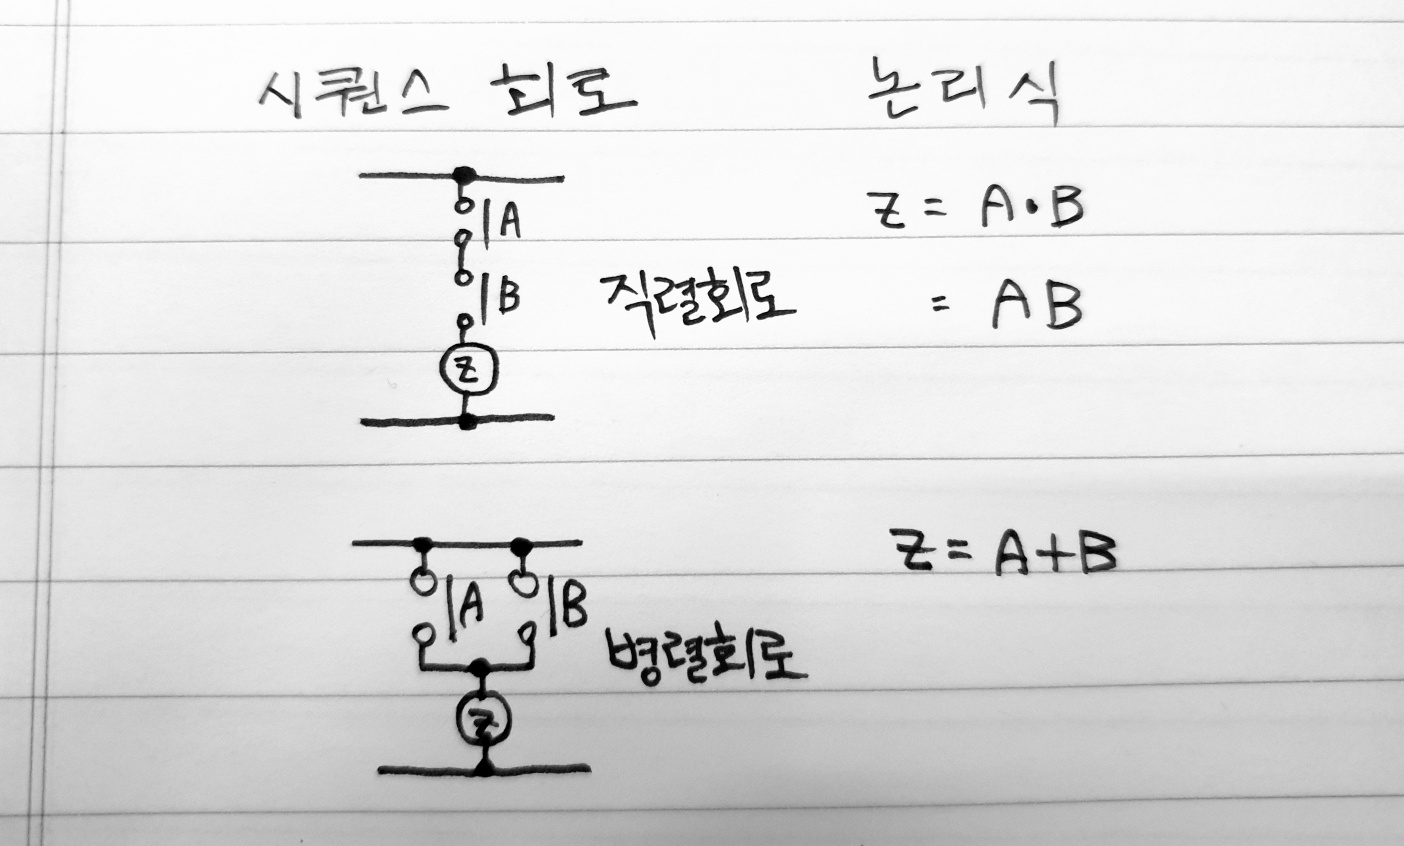 시퀀스 회로 논리식
A
B
Z
직렬회로
Z = A·B
= AB
A B
Z
병렬회로
Z = A+B